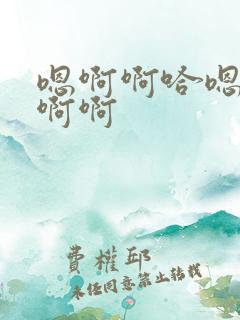 嗯啊啊哈嗯
啊啊
费权邱
未经同意禁止转载